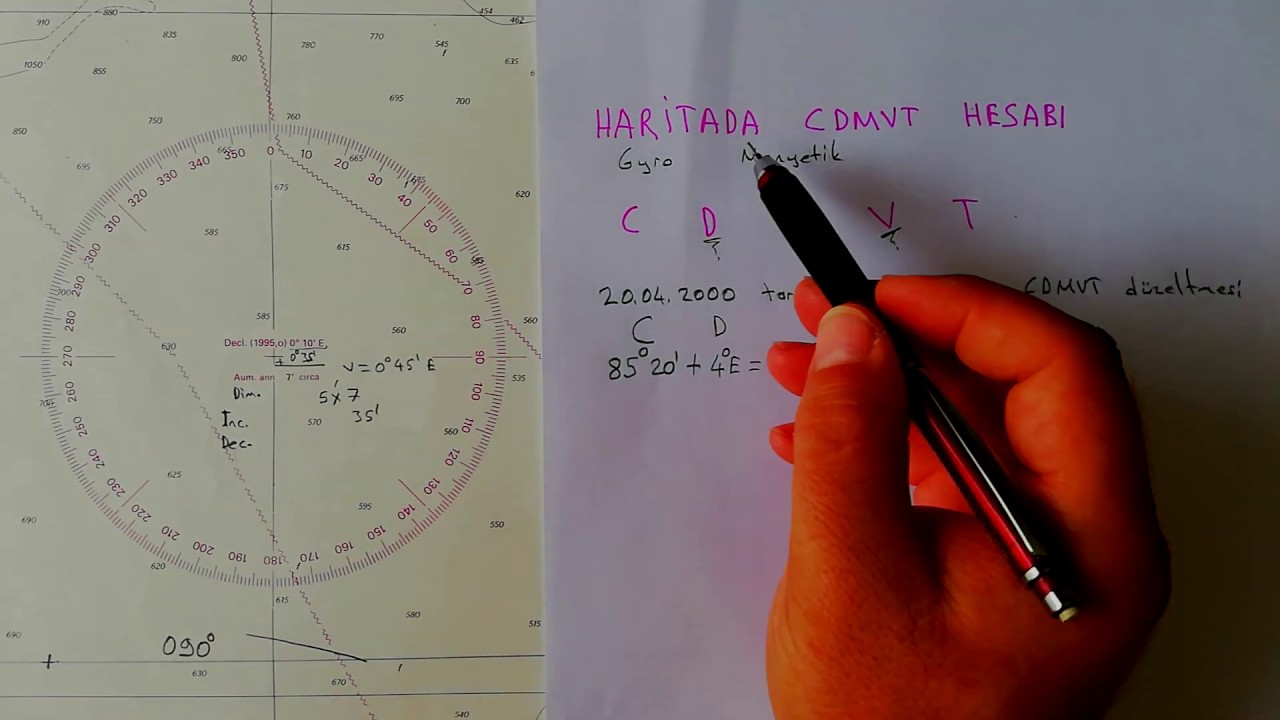 910 880 835 780 770 545 454 462
1050 855 800 635 6
695 700
850 750 760
695 665 665 635 620
675
585 615 585
700 585 560 560
630 535
700 570 560
625 595
690 550
620 615 580 515
690 630 670 540
0 10 20 30 40 50 60 70 80 90 100 110 120 130 140 150 160 170 180 190 200 210 220 230 240 250 260 270 280 290 300 310 320 330 340 350
Decl. (1995,o) 0° 10' E,
+ 0°35'
V = 0°45' E
Aum. ann 7' circa
Dim. 5 x 7
Inc. 35'
Dec.
090°
HARİTADA CDMVT HESABI
Gyro Manyetik
C D V T
? ?
20.04.2000 CDMVT düzeltmesi
C D
85°20' + 4°E =